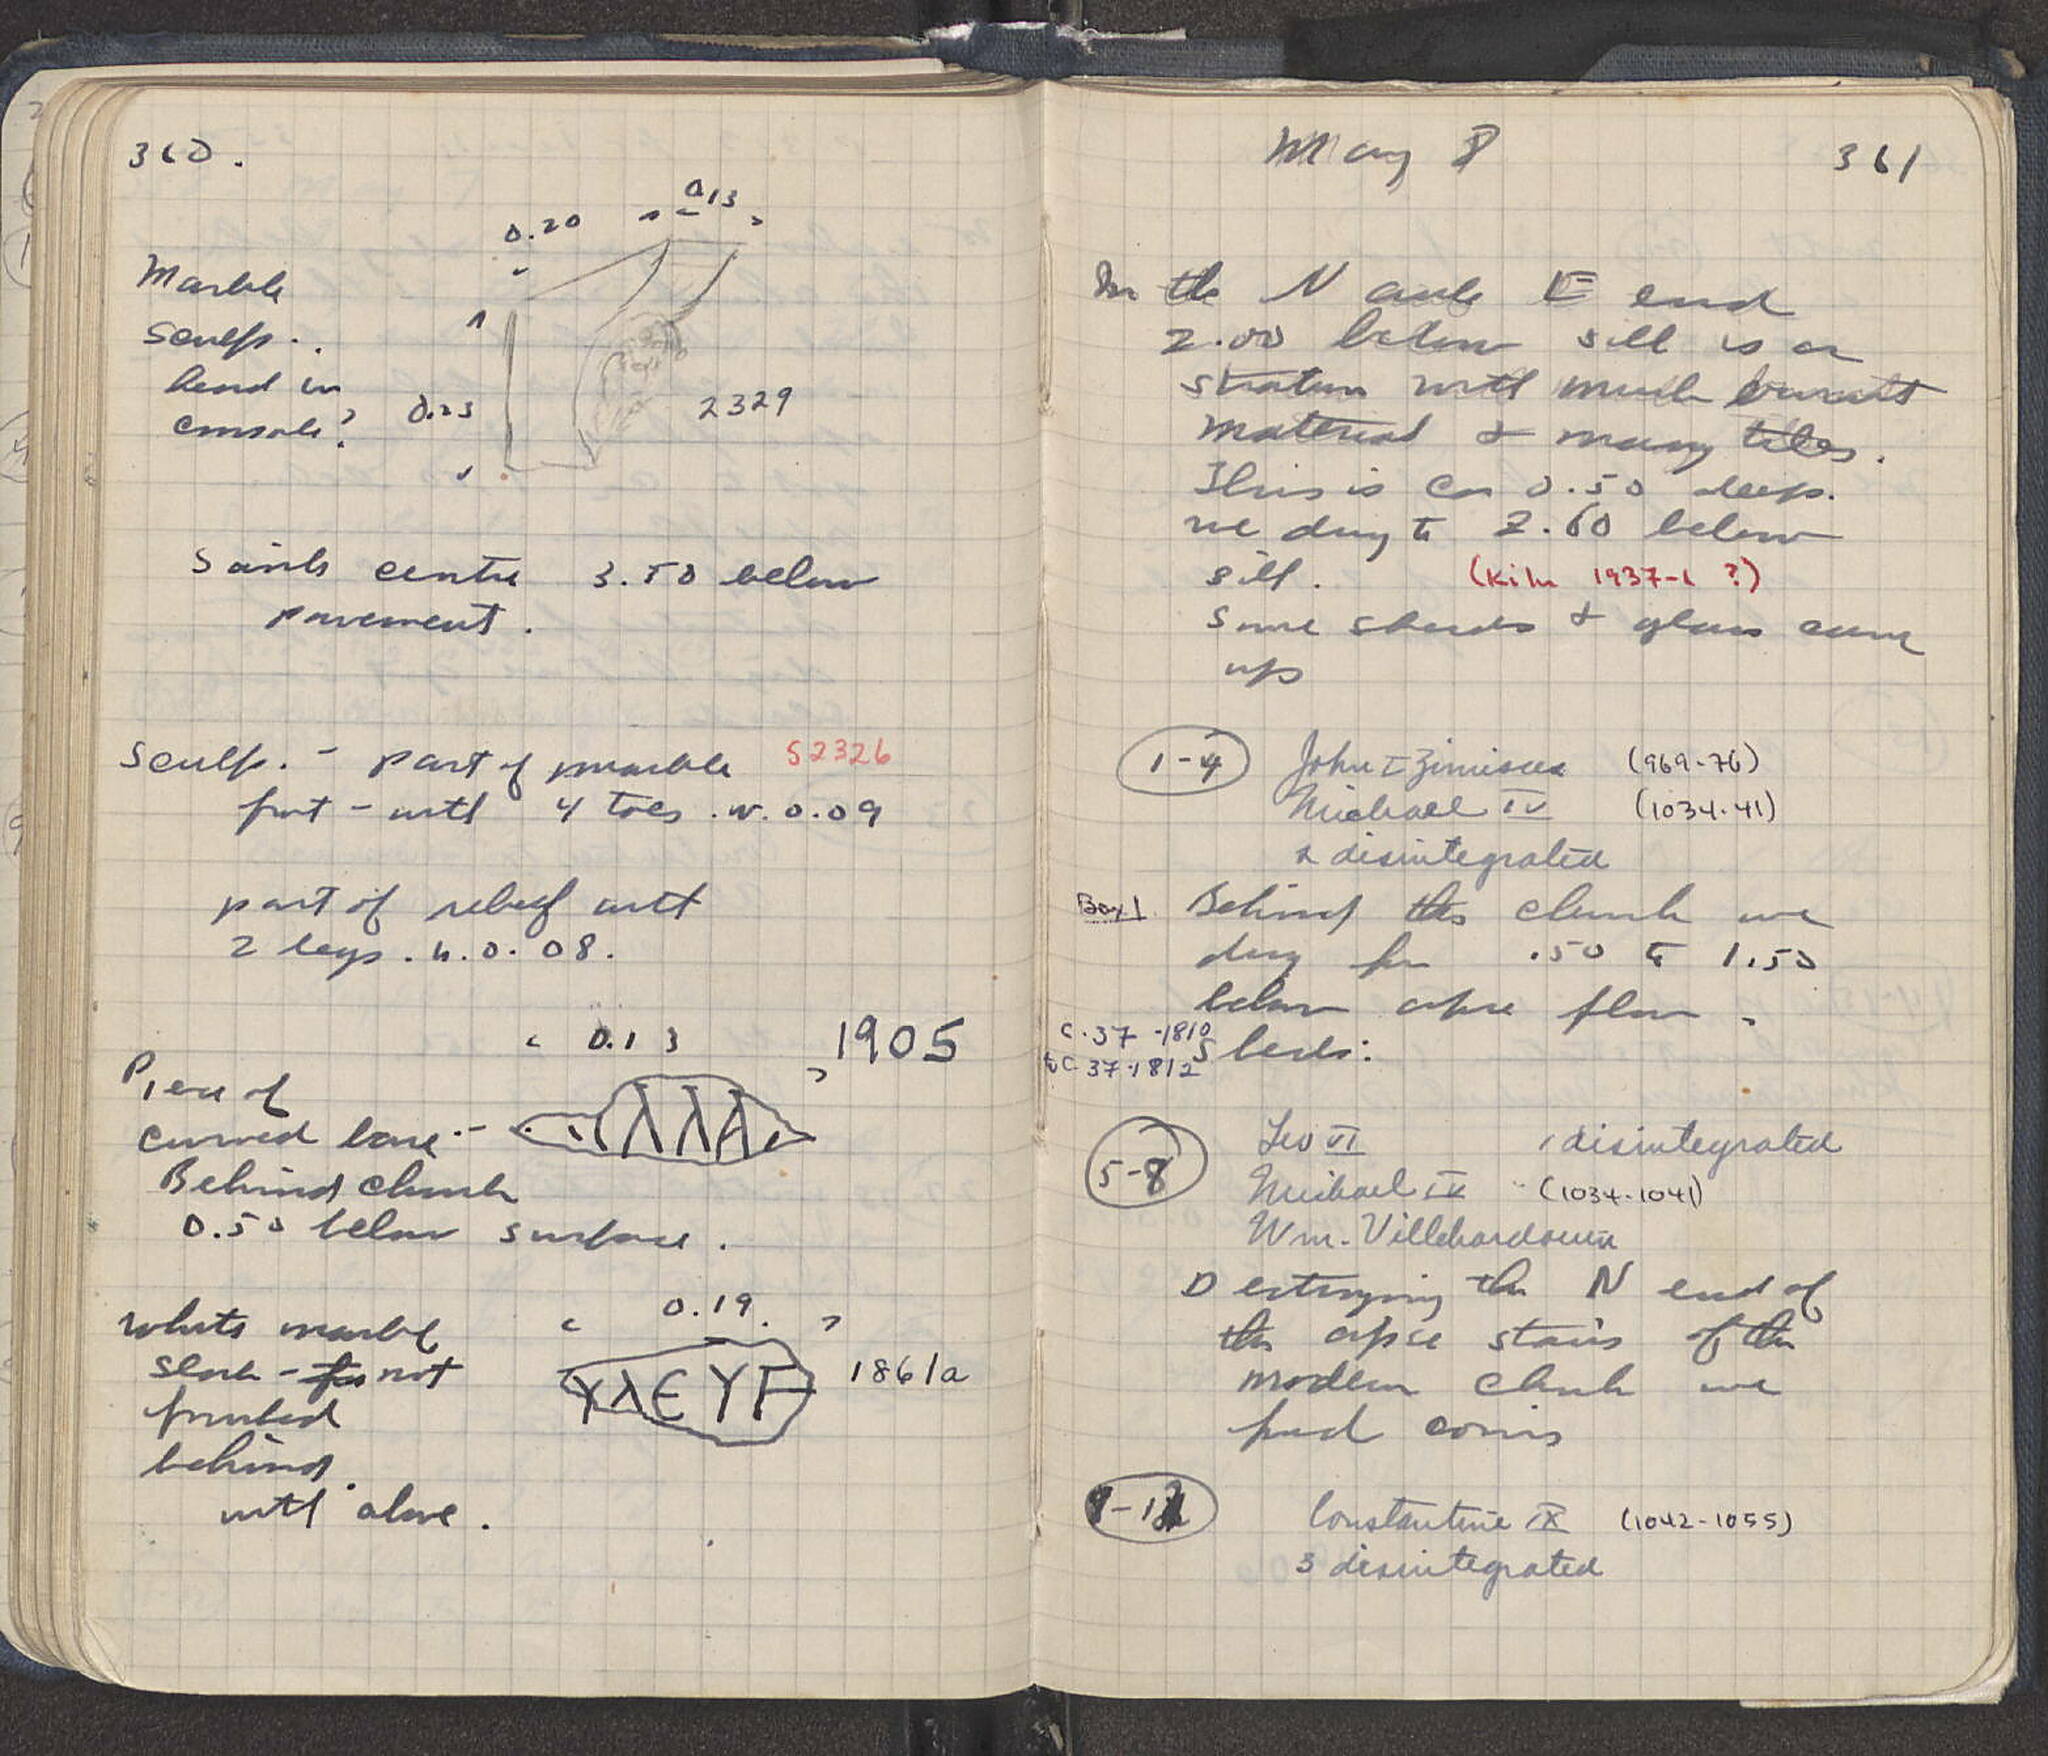 360.
0.20
0.13
Marble
Sculp..
head in
console?
0.23
2329
Saints centre 3.50 below
pavement.
Sculp. - part of marble S2326
foot - with 4 toes. w. 0.09
part of relief with
2 legs. h. 0.08.
0.13
1905
Piece of
curved base -
Behind church
0.50 below surface.
White marble
slab - not
finished
behind.
with above.
0.19.
ΥΛΕΥΓ
1861a
May 8
361
In the N aisle E end
2.00 below sill is a
stratum with much burnt
material & many tiles.
This is ca 0.50 deep.
we dug to 2.60 below
sill.
(Kiln 1937-1 ?)
Some sherds & glass came
up
1-4
John I Zimisces (969-76)
Michael IV (1034-41)
2 disintegrated
Box 1
Behind the church we
dug for .50 to 1.50
below apse floor.
C.37-1810
to C.37-1812
5-8
Leo VI 1 disintegrated
Michael IV (1034-1041)
Wm. Villehardouin
Destroying the N end of
the apse stairs of the
modern church we
find coins
Constantine IX (1042-1055)
3 disintegrated